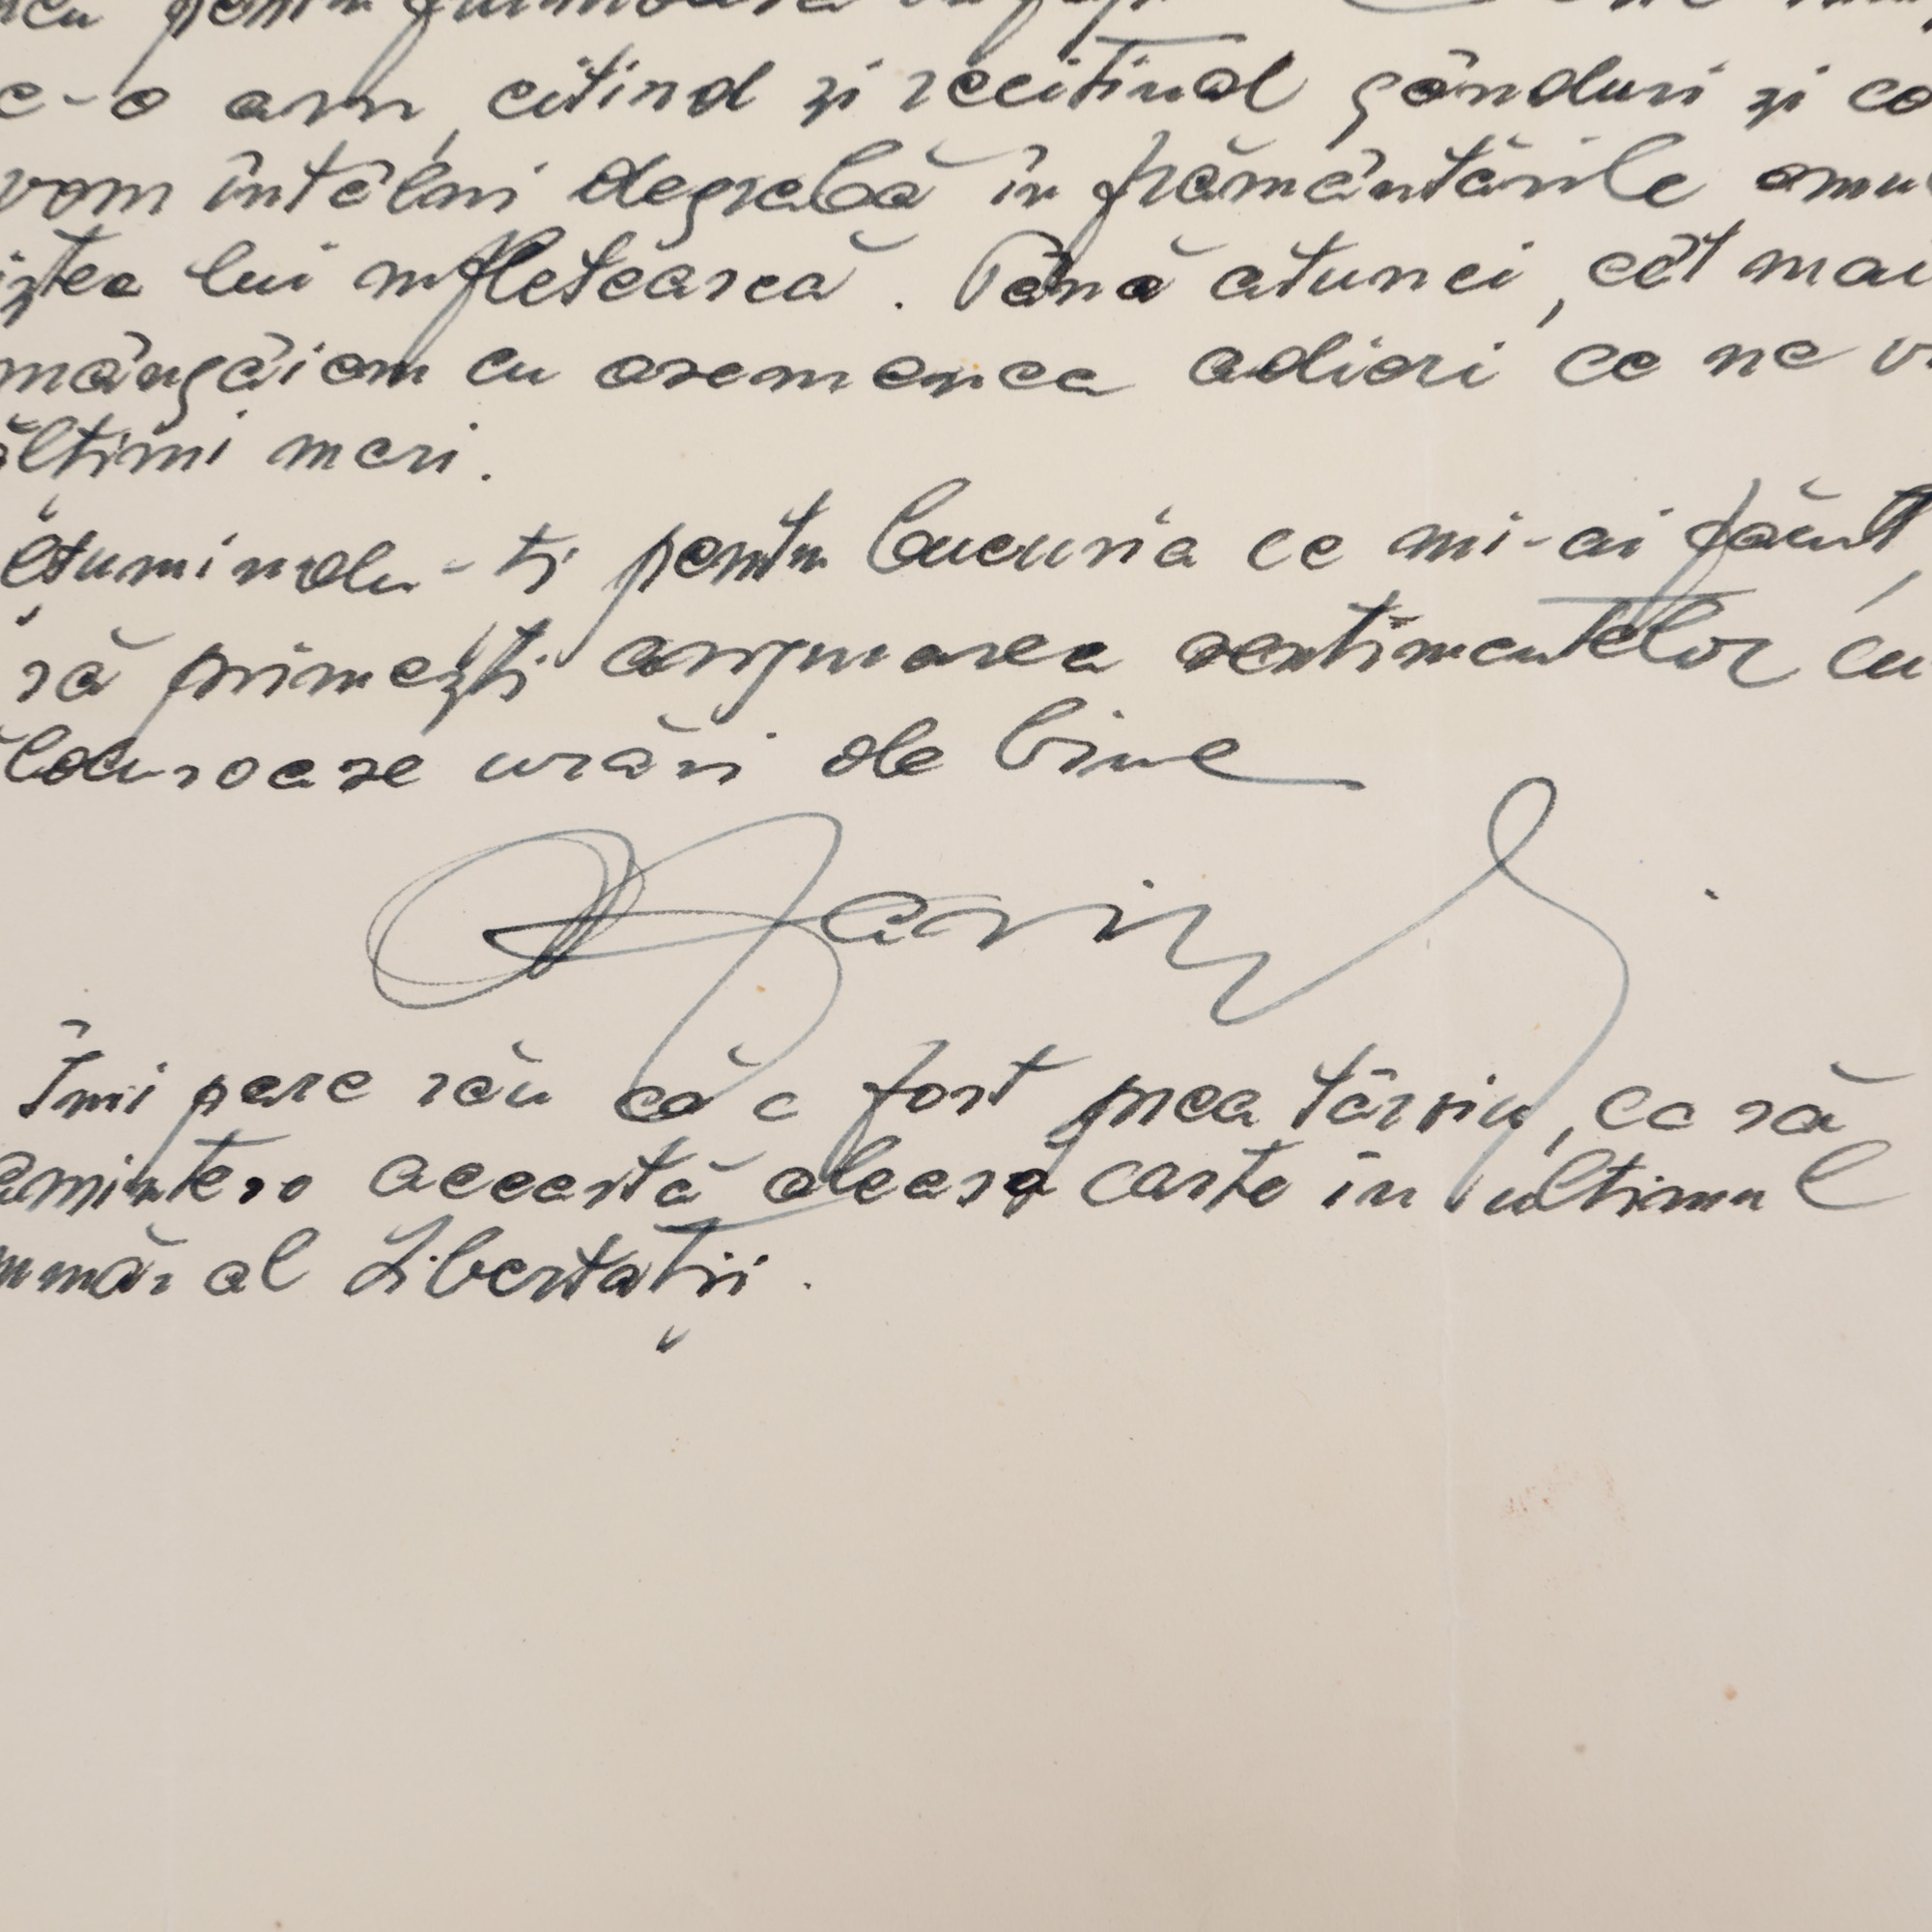 pentru frumoasa
c-o am, citind și recitind gânduri și co
vom întâlni degrabă în frământările omu
iștea lui sufletească. Până atunci, cât mai
mângâiam cu asemenea adieri ce ne v
ălțimi mari.
lțumindu-ți pentru bucuria ce mi-ai făcut,
să primești asigurarea sentimentelor cu
ălduroase urări de bine
Îmi pare rău că a fost prea târziu, ca să
amintesc această aleasă carte în ultimul
număr al Libertății.